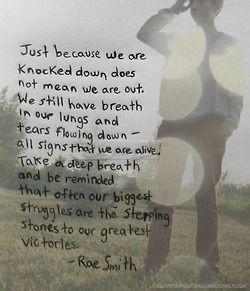 Just because we are
knocked down does
not mean we are out.
We still have breath
in our lungs and
tears flowing down –
all signs that we are alive.
Take a deep breath
and be reminded
that often our biggest
struggles are the stepping
stones to our greatest
victories.
-Rae Smith
THELOVEYOURSELFCHALLENGE.TUMBLR.COM